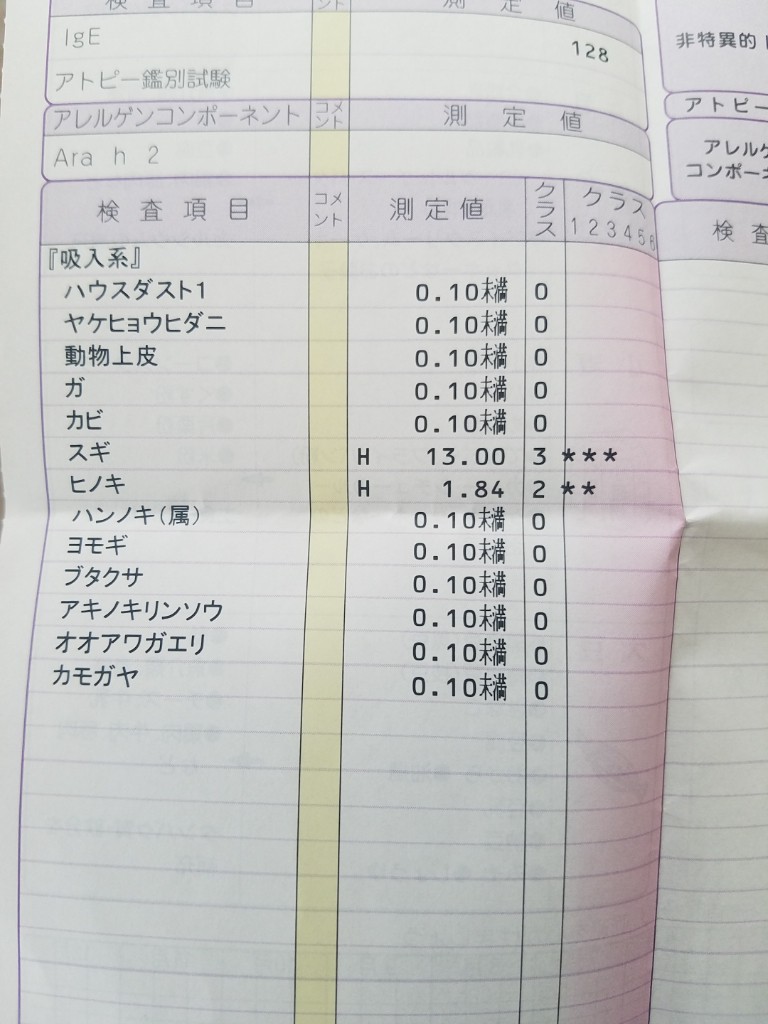 検査項目 コメント 測定値
IgE 128
アトピー鑑別試験
アレルゲンコンポーネント コメント 測定値
Ara h 2
検査項目 コメント 測定値 クラス クラス 1 2 3 4 5 6
『吸入系』
ハウスダスト1 0.10未満 0
ヤケヒョウヒダニ 0.10未満 0
動物上皮 0.10未満 0
ガ 0.10未満 0
カビ 0.10未満 0
スギ H 13.00 3 ***
ヒノキ H 1.84 2 **
ハンノキ(属) 0.10未満 0
ヨモギ 0.10未満 0
ブタクサ 0.10未満 0
アキノキリンソウ 0.10未満 0
オオアワガエリ 0.10未満 0
カモガヤ 0.10未満 0
非特異的
アトピー
アレルゲ
コンポーネ
検査